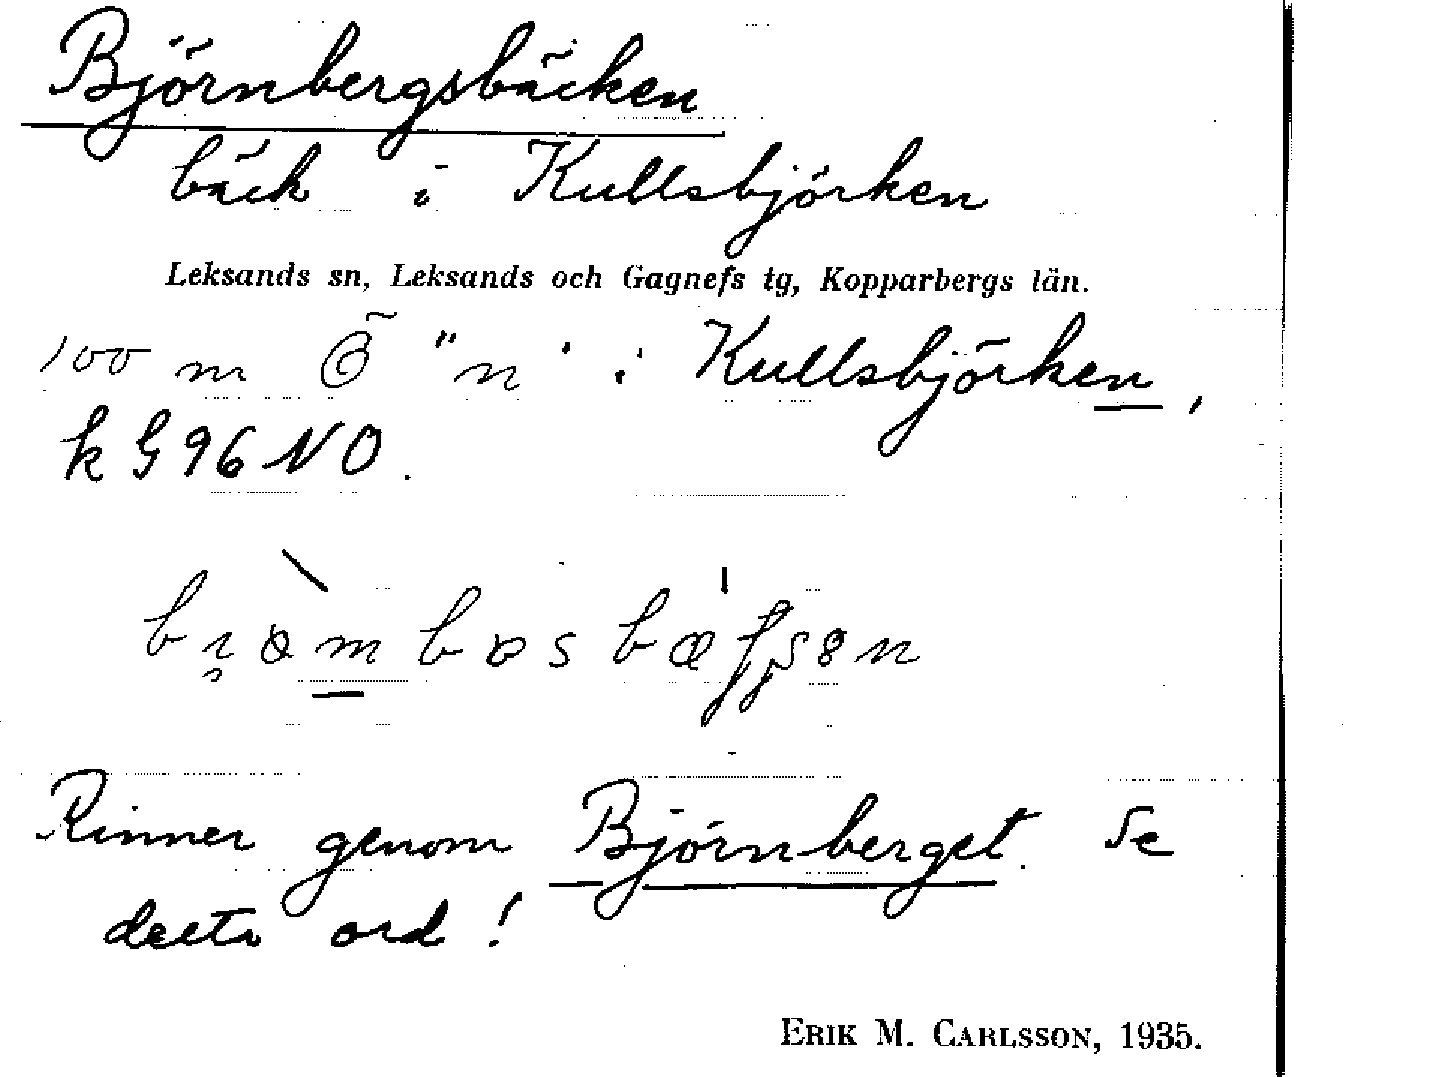 Björnbergsbäcken
bäck i Kullsbjörken
Leksands sn, Leksands och Gagnefs tg, Kopparbergs län.
100 m Ö "n" i Kullsbjörken,
k G96NO.
Rinner genom Björnberget. Se
detta ord!
ERIK M. CARLSSON, 1935.